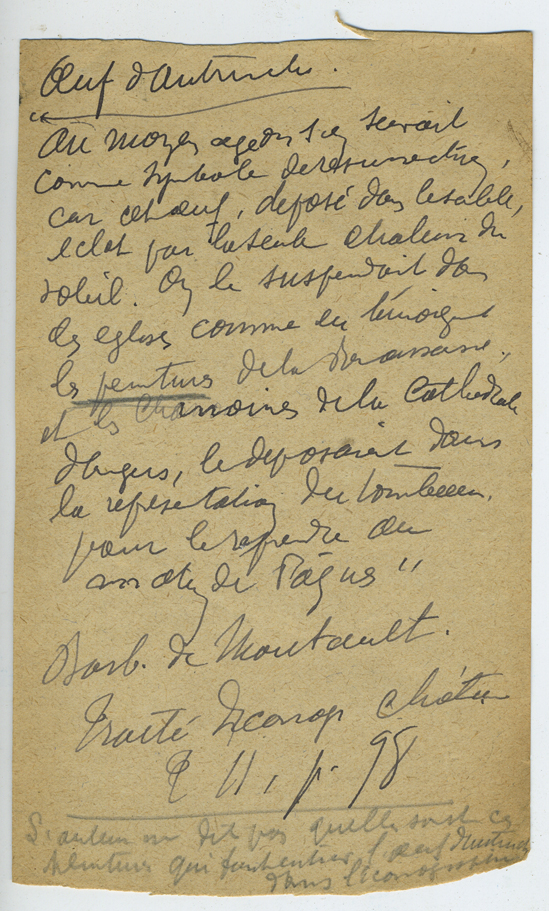 Œuf d'autruche.
"Au moyen age on s'en servait
comme symbole de resurrection,
car cet œuf, déposé dans le sable,
eclot par la seule chaleur du
soleil. On le suspendait dans
les eglises comme en témoignent
les peintures de la Renaissance,
et les chanoines de la Cathédrale
d'Angers, le deposaient dans
la représentation du tombeau,
pour le reprendre au
matin de Pâques"
Barb. de Montault.
Traité Iconog chrétienne
T II, p. 98
L'auteur ne dit pas quelles sont ces
peintures qui font entrer l'œuf d'autruche
dans l'iconographie